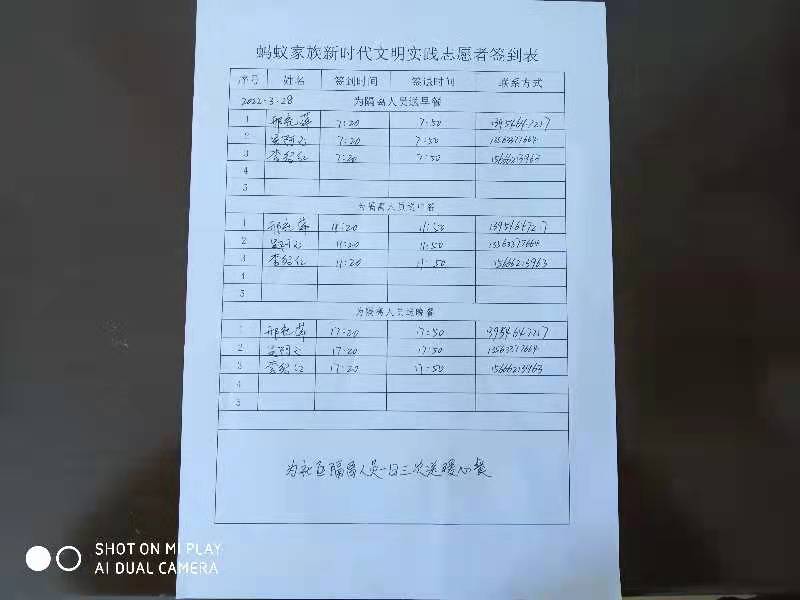 蚂蚁家族新时代文明实践志愿者签到表
序号 姓名 签到时间 签送时间 联系方式
2022-3-28 为隔离人员送早餐
1 7:20 7:50
2 7:20 7:50 13563377664
3 李纪红 7:20 7:50 15666213963
4
5
为隔离人员送中餐
1 11:20 11:50
2 11:20 11:50 13563377664
3 李纪红 11:20 11:50 15666213963
4
5
为隔离人员送晚餐
1 17:20 17:50
2 17:20 17:50 13563377664
3 李纪红 17:20 17:50 15666213963
4
5
为社区隔离人员一日三次送暖心餐
SHOT ON MI PLAY
AI DUAL CAMERA